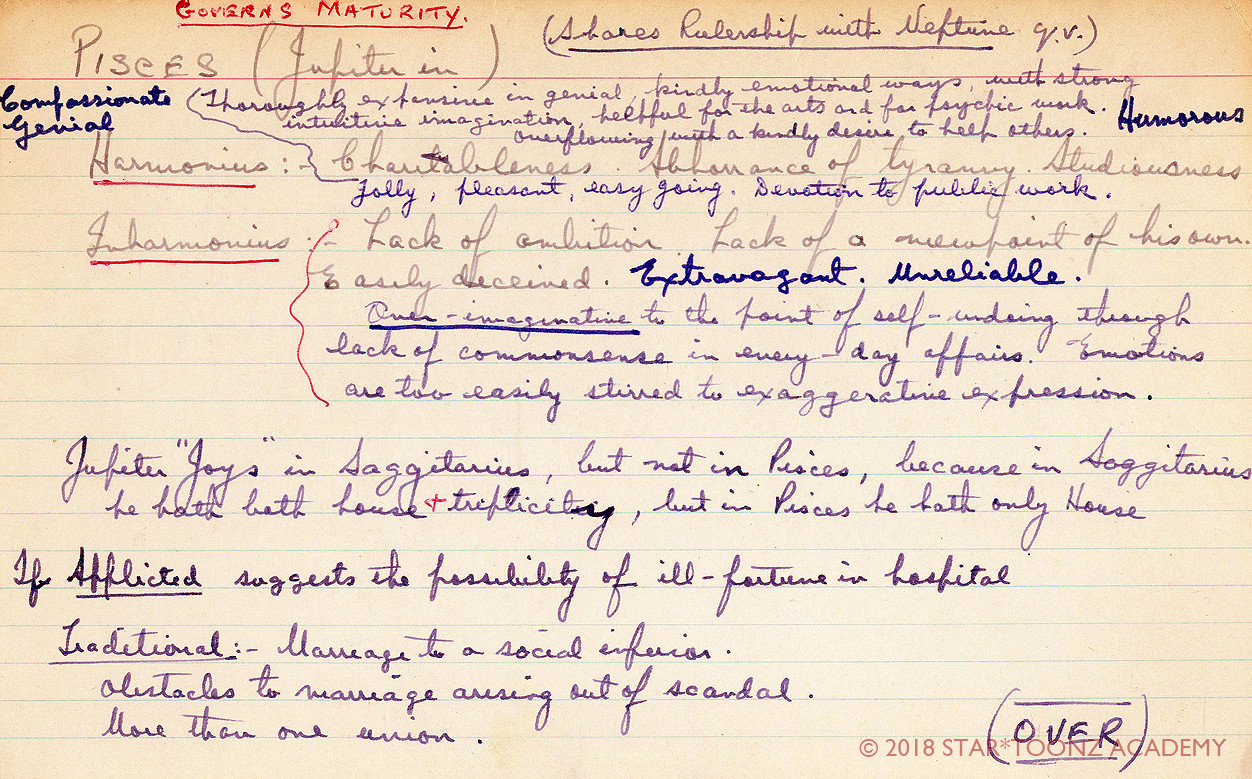 GOVERNS MATURITY.
PISCES (Jupiter in) (Shares Rulership with Neptune q.v.)
Compassionate
Genial
(Thoroughly expansive in genial, kindly emotional ways, with strong
intuitive imagination, helpful for the arts and for psychic work. Humorous
Overflowing with a kindly desire to help others.
Harmonius :- Charitableness. Abhorrance of tyranny. Studiousness
Jolly, pleasant, easy going. Devotion to public work.
Inharmonius :- Lack of ambition Lack of a viewpoint of his own.
Easily deceived. Extravagant. Unreliable.
Over-imaginative to the point of self-undoing through
lack of commonsense in every-day affairs. Emotions
are too easily stirred to exaggerative expression.
Jupiter "Joys" in Saggitarius, but not in Pisces, because in Saggitarius
he hath both house + triplicity, but in Pisces he hath only House
If Afflicted suggests the possibility of ill-fortune in hospital
Traditional:- Marreage to a social inferior.
Obstacles to marriage arising out of scandal.
More than one union.
(OVER)
© 2018 STAR*TOONZ ACADEMY